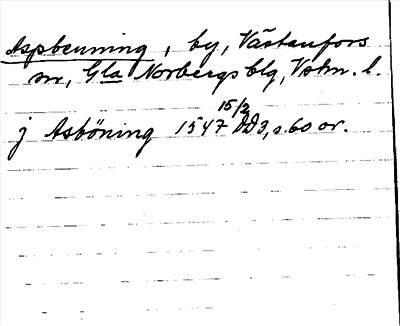 Aspbenning, by, Västanfors
sn, Gla Norbergs blg, Vstm. l.
15/2
j Asböning 1547 DD3, s. 60 or.